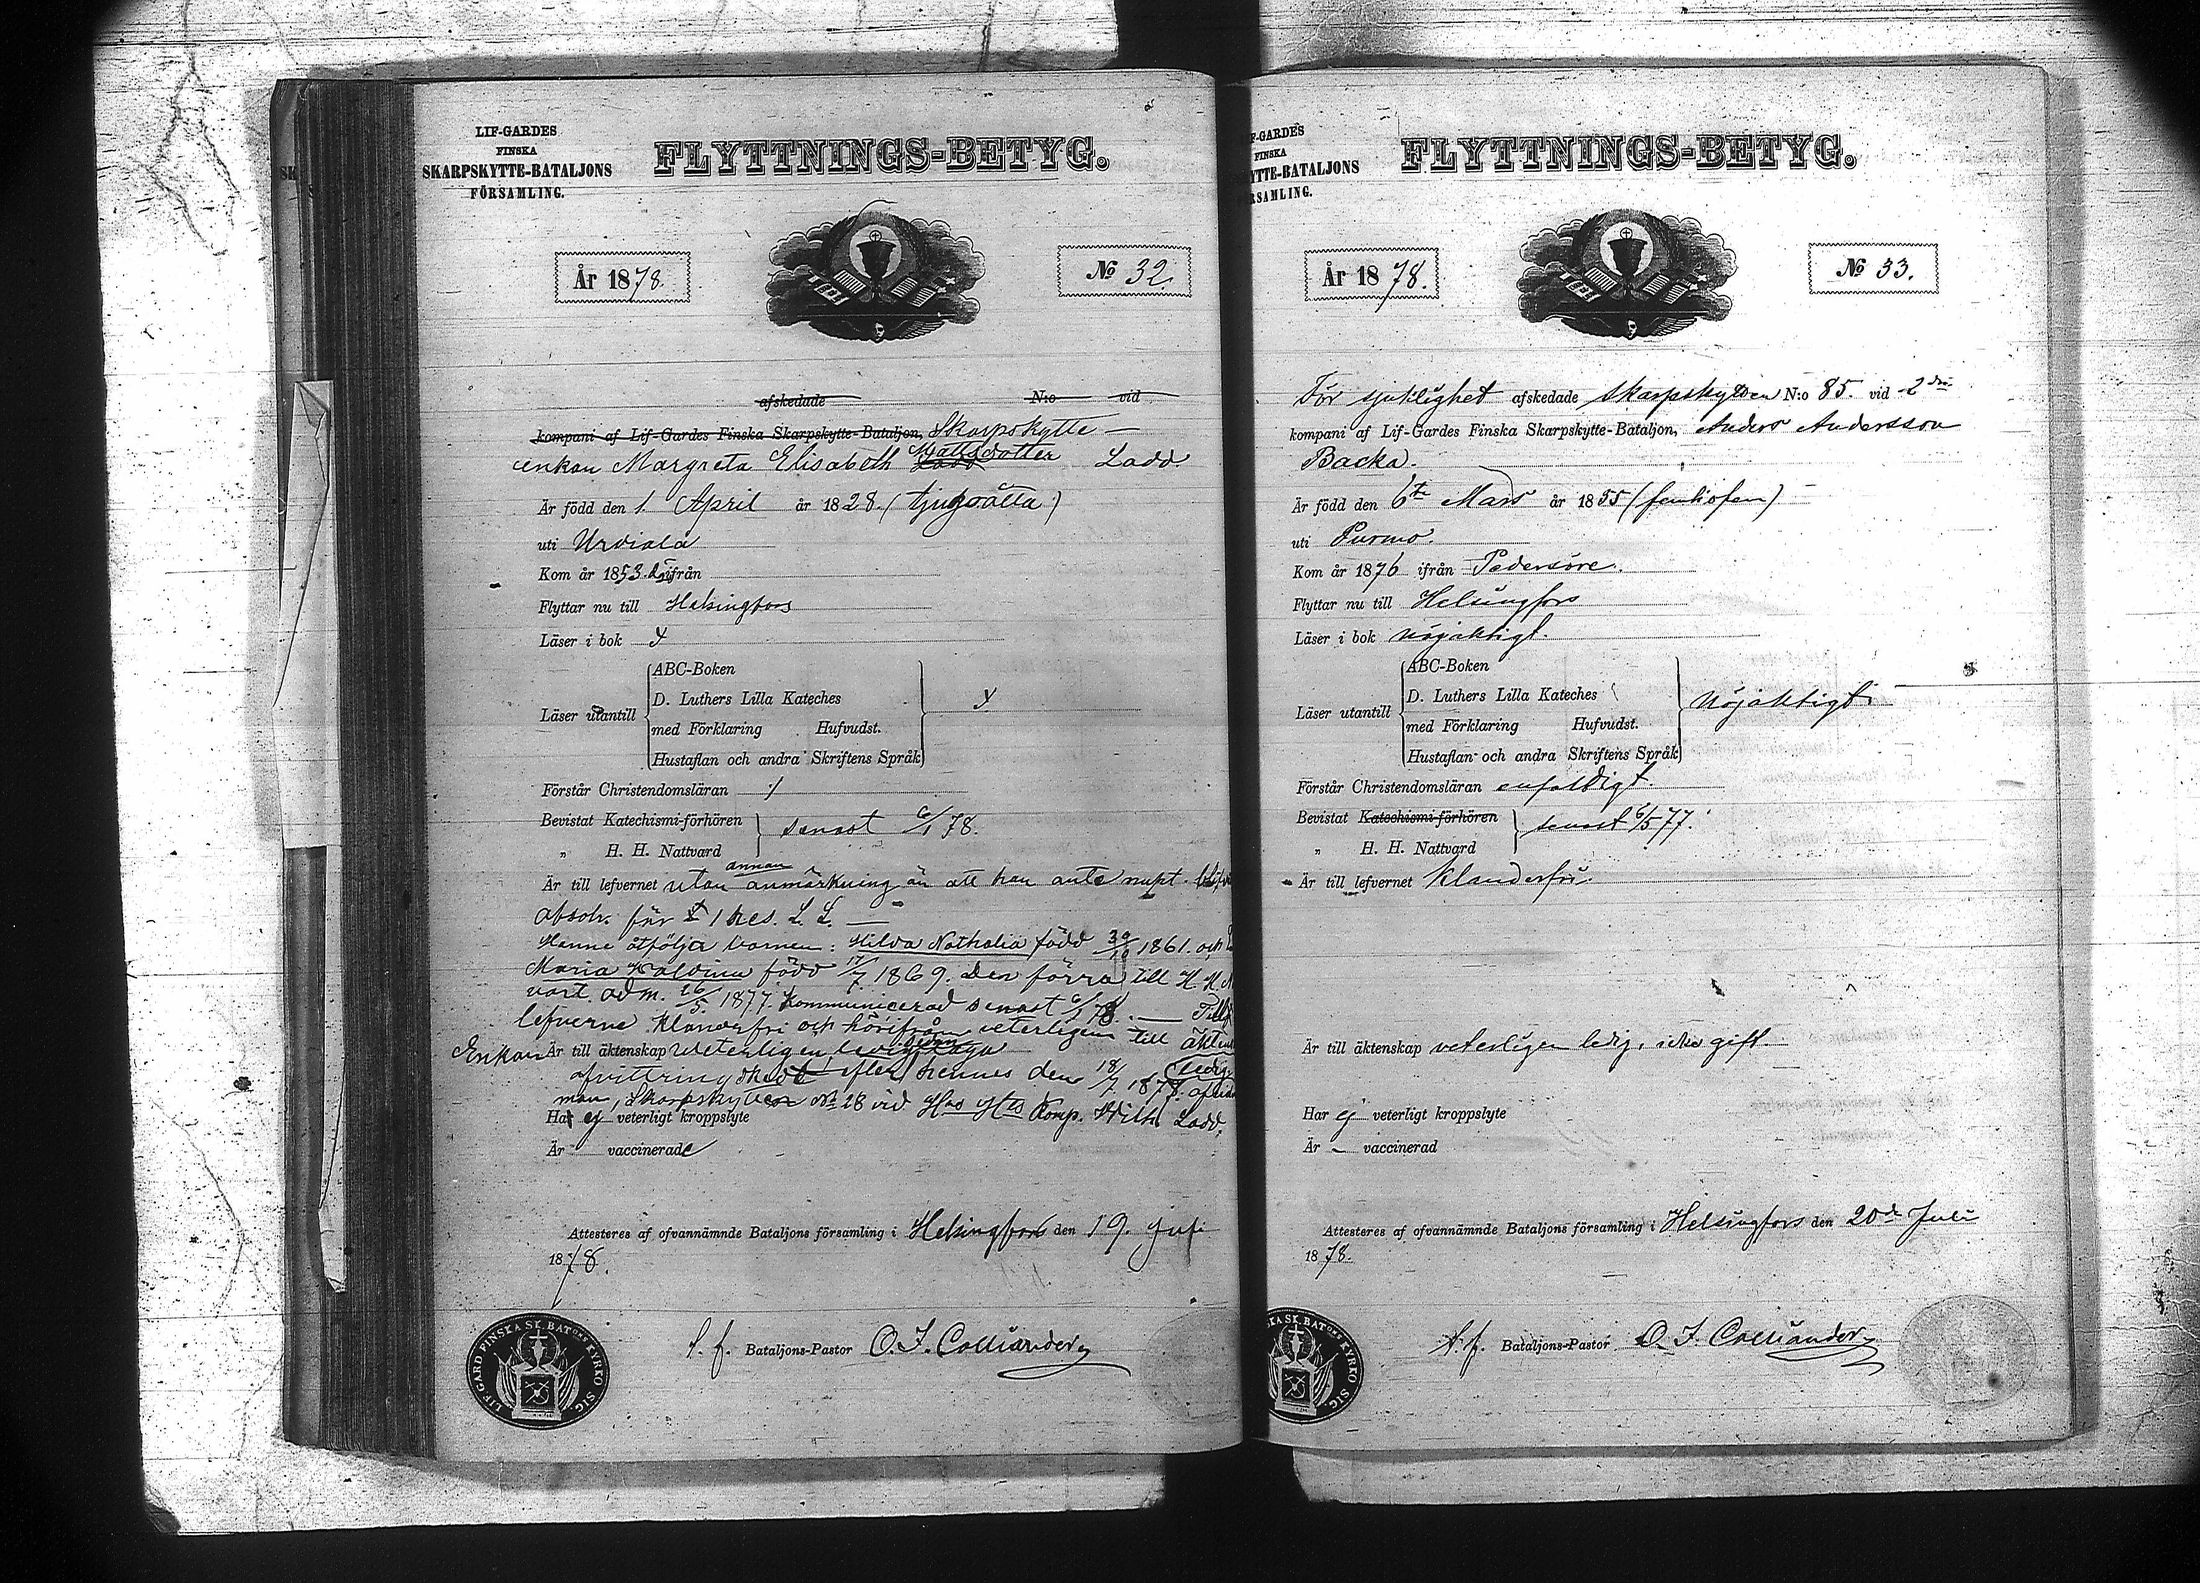 LIF-GARDES
FINSKA
SKARPSKYTTE-BATALJONS
FÖRSAMLING.
FLYTTNINGS-BETYG.
År 1878.
No 32.
afskedade N:o vid
kompani af Lif-Gardes Finska Skarpskytte-Bataljon, Skarpskytte
enkan Margreta Elisabeth Ladd Mattsdotter Ladd.
Är född den 1. April år 1828. (tjugoåtta)
uti Urdiala
Kom år 1853 ifrån
Flyttar nu till Helsingfors
Läser i bok
Läser utantill
ABC-Boken
D. Luthers Lilla Kateches
med Förklaring Hufvudst.
Hustaflan och andra Skriftens Språk
Förstår Christendomsläran
Bevistat Katechismi-förhören
senast 6/1 78.
„ H. H. Nattvard
annan
Är till lefvernet utan anmärkning än att hon ante nupt.
absolv. för 1 hes. L. L.
Henne åtfölja barnen: Hilda Nathalia född 1861. och
Maria född 1869. Den förra till H. H.
vard. adm. 26/5. 1877. Kommunicerad senast 6/1 78.
lefverne klanderfri och härifrån veterligen till
Enkan Är till äktenskap veterligen ledig
sedan
afvittring skedt efter hennes den 18/7 1878. aflidne
man, Skarpskytten No 28 vid Hns Hts Komp. Wilh. Ladd.
Har ej veterligt kroppslyte
Är vaccinerad
Attesteres af ofvannämnde Bataljons församling i Helsingfors den 19. Juli
1878.
LIF GARD FINSKA SK. BAT:ONS KYRKO SIG.
t. f. Bataljons-Pastor O. I. Colliander
F-GARDES
FINSKA
YTTE-BATALJONS
RSAMLING.
FLYTTNINGS-BETYG.
År 1878.
No 33.
För sjuklighet afskedade skarpskytten N:o 85. vid 2dra
kompani af Lif-Gardes Finska Skarpskytte-Bataljon, Anders Andersson
Backa.
Är född den 6te Mars år 1855 (femtiofem)
uti Purmo.
Kom år 1876 ifrån Pedersöre.
Flyttar nu till Helsingfors
Läser i bok nöjaktigt.
Läser utantill
ABC-Boken
D. Luthers Lilla Kateches
med Förklaring Hufvudst.
Hustaflan och andra Skriftens Språk
nöjaktigt.
Förstår Christendomsläran enfaldigt.
Bevistat Katechismi-förhören
senast 6/5 77.
„ H. H. Nattvard
Är till lefvernet klanderfri.
Är till äktenskap veterligen ledig, icke gift.
Har ej veterligt kroppslyte
Är vaccinerad
Attesteres af ofvannämnde Bataljons församling i Helsingfors den 20de Juli
1878.
KA SK. BAT:ONS KYRKO SIG.
t. f. Bataljons-Pastor O. I. Colliander